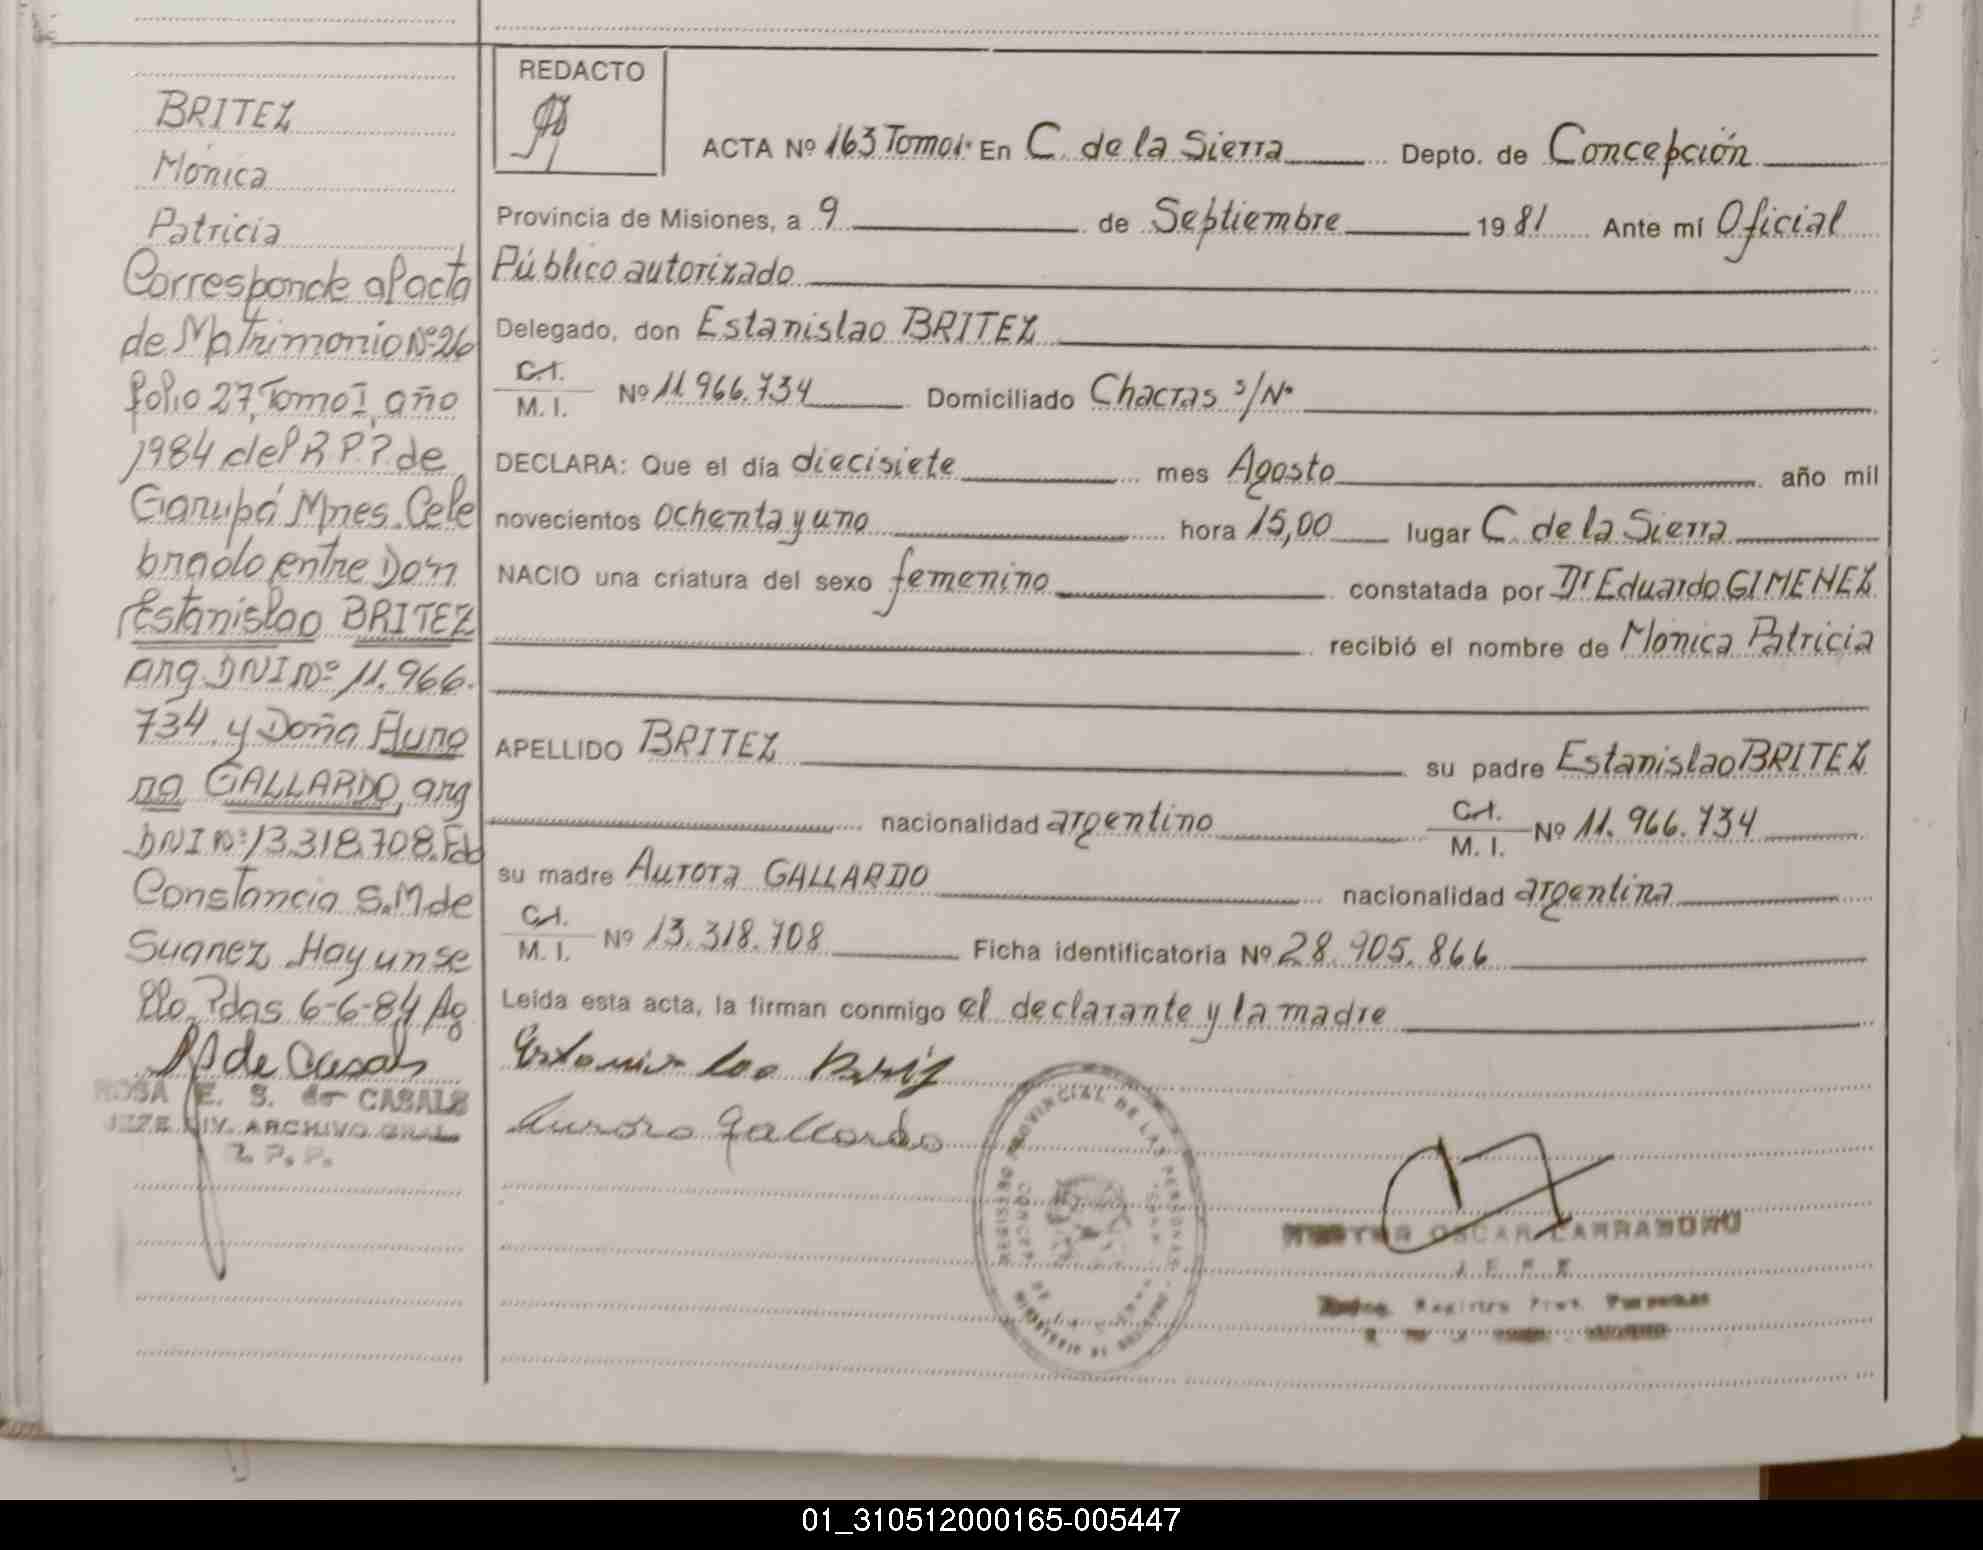 BRITEZ
Mónica
Patricia
Corresponde al acta
de Matrimonio Nº 26
folio 27, Tomo I, año
1984 del R.P.P de
Garupá Mnes. Cele
brado entre Don
Estanislao BRITEZ
arg. DNI Nº 11.966.
734 y Doña Auro
ra GALLARDO, arg
DNI Nº 13.318.708. Fdo
Constancia S.M de
Suarez Hay un se
llo. Pdas 6-6-84 Ag
de Casals
ROSA E. S. de CASALS
JEFE DIV. ARCHIVO GRAL
R. P. P.
REDACTO
ACTA Nº 163 Tomo I. En C. de la Sierra Depto. de Concepción
Provincia de Misiones, a 9 de Septiembre 1981 Ante mí Oficial
Público autorizado
Delegado, don Estanislao BRITEZ
C.I.
M. I. Nº 11.966.734 Domiciliado Chacras s/Nº
DECLARA: Que el día diecisiete mes Agosto año mil
novecientos ochenta y uno hora 15,00 lugar C. de la Sierra
NACIO una criatura del sexo femenino constatada por Dr Eduardo GIMENEZ
recibió el nombre de Mónica Patricia
APELLIDO BRITEZ su padre Estanislao BRITEZ
nacionalidad argentino C.I.
M. I. Nº 11.966.734
su madre Aurora GALLARDO nacionalidad argentina
C.I.
M. I. Nº 13.318.708 Ficha identificatoria Nº 28.905.866
Leída esta acta, la firman conmigo el declarante y la madre
Estanislao Britez
Aurora Gallardo
REGISTRO PROVINCIAL DE LAS PERSONAS
MINISTERIO DE GOBIERNO
OSCAR LARRABURU
JEFE
Registro Prov. Personas
01_310512000165-005447